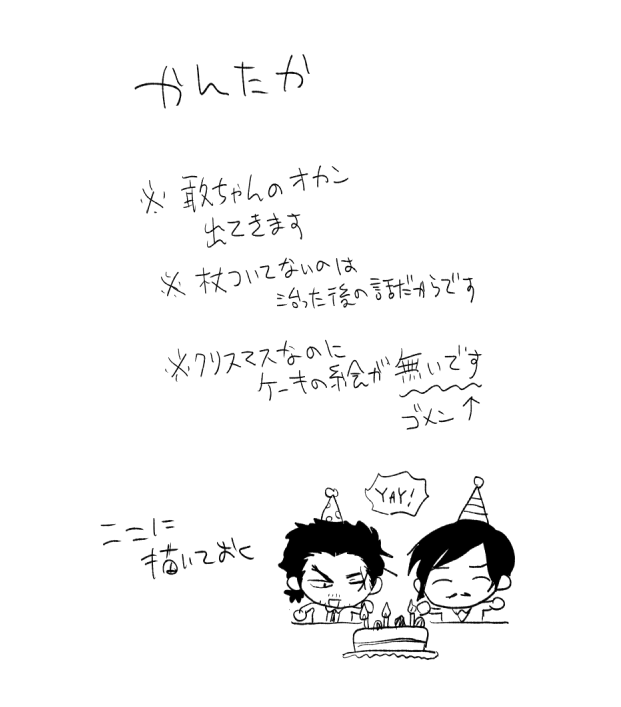 かんたか
※敢ちゃんのオカン
出てきます
※杖ついてないのは
治った後の話だからです
※クリスマスなのに
ケーキの絵が無いです
ゴメン↑
YAY!
ここに
描いておく